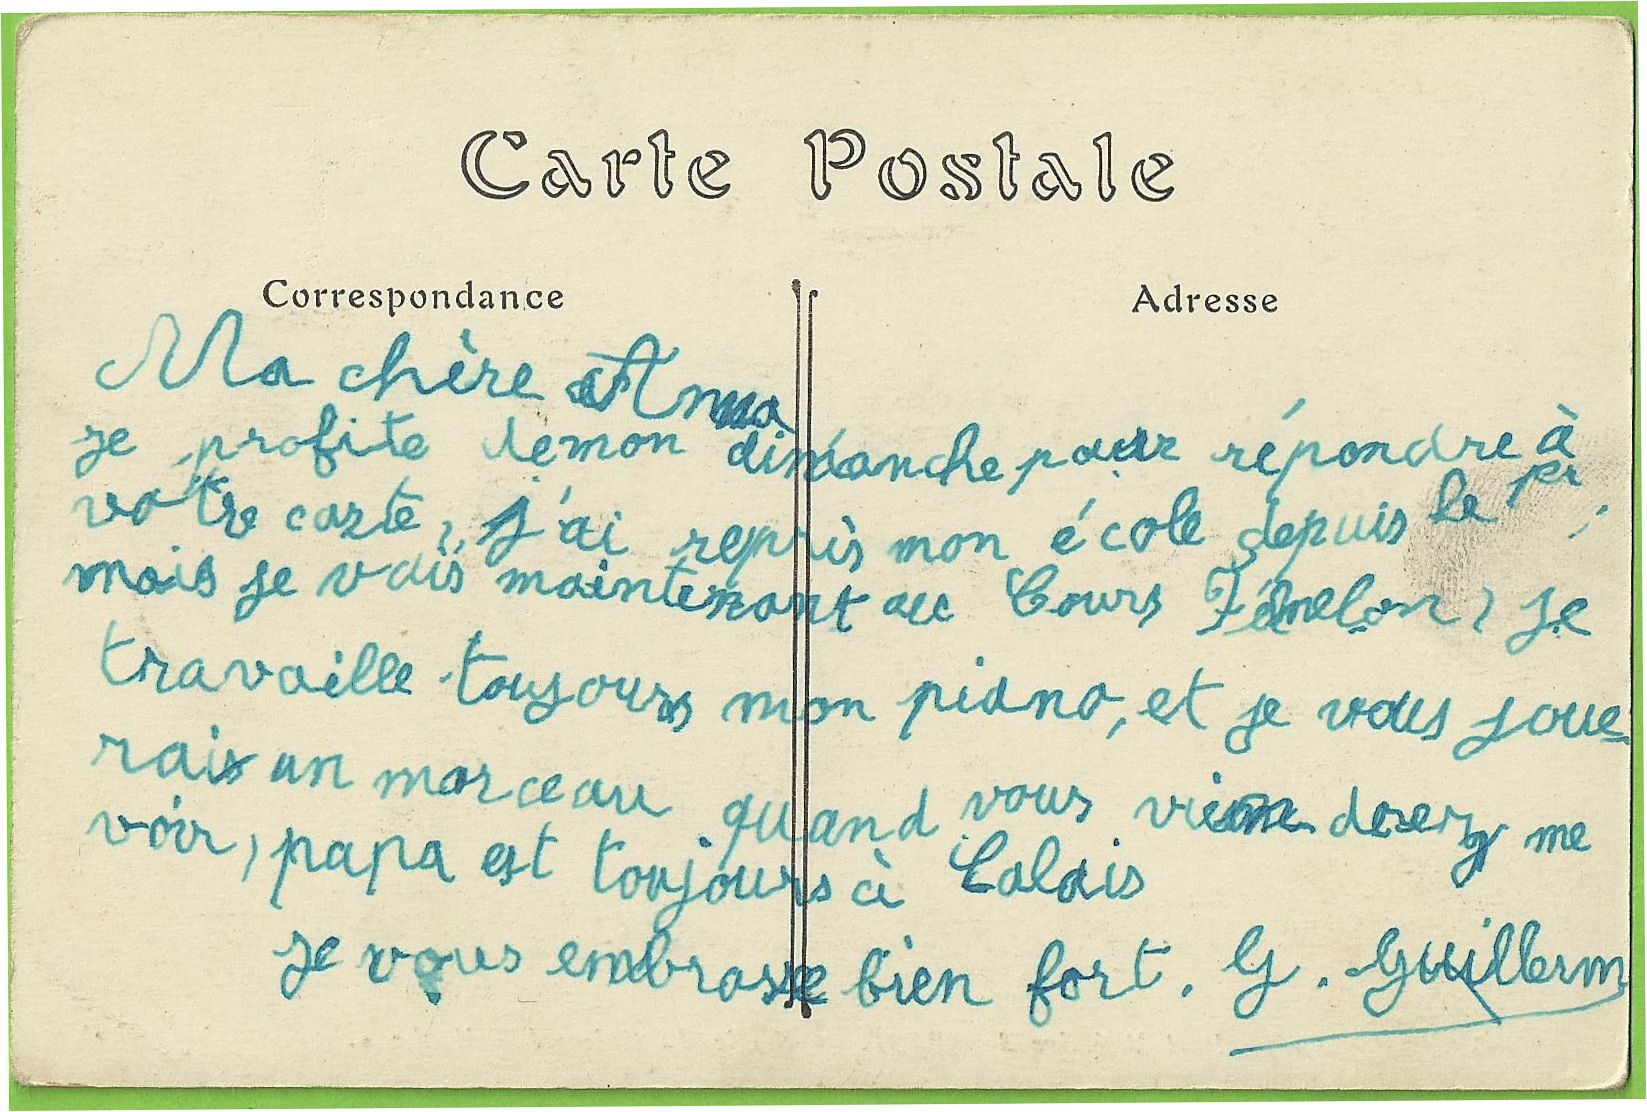 Carte Postale
Correspondance
Adresse
Ma chère Anna
je profite de mon dimanche pour répondre à
votre carte, j'ai repris mon école depuis le 1er,
mais je vais maintenant au Cours Fénelon, je
travaille toujours mon piano, et je vous joue-
rais un morceau quand vous viendrez me
voir, papa est toujours à Calais
je vous embrasse bien fort. G. Guillerm